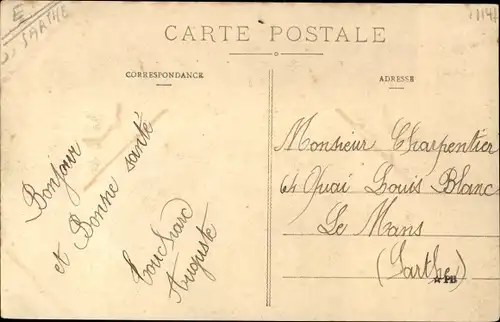 E
SARTHE
CARTE POSTALE
CORRESPONDANCE
Bonjour
et Bonne santé
Touchard
Auguste
ADRESSE
Monsieur Charpentier
64 Quai Louis Blanc
Le Mans
(Sarthe)